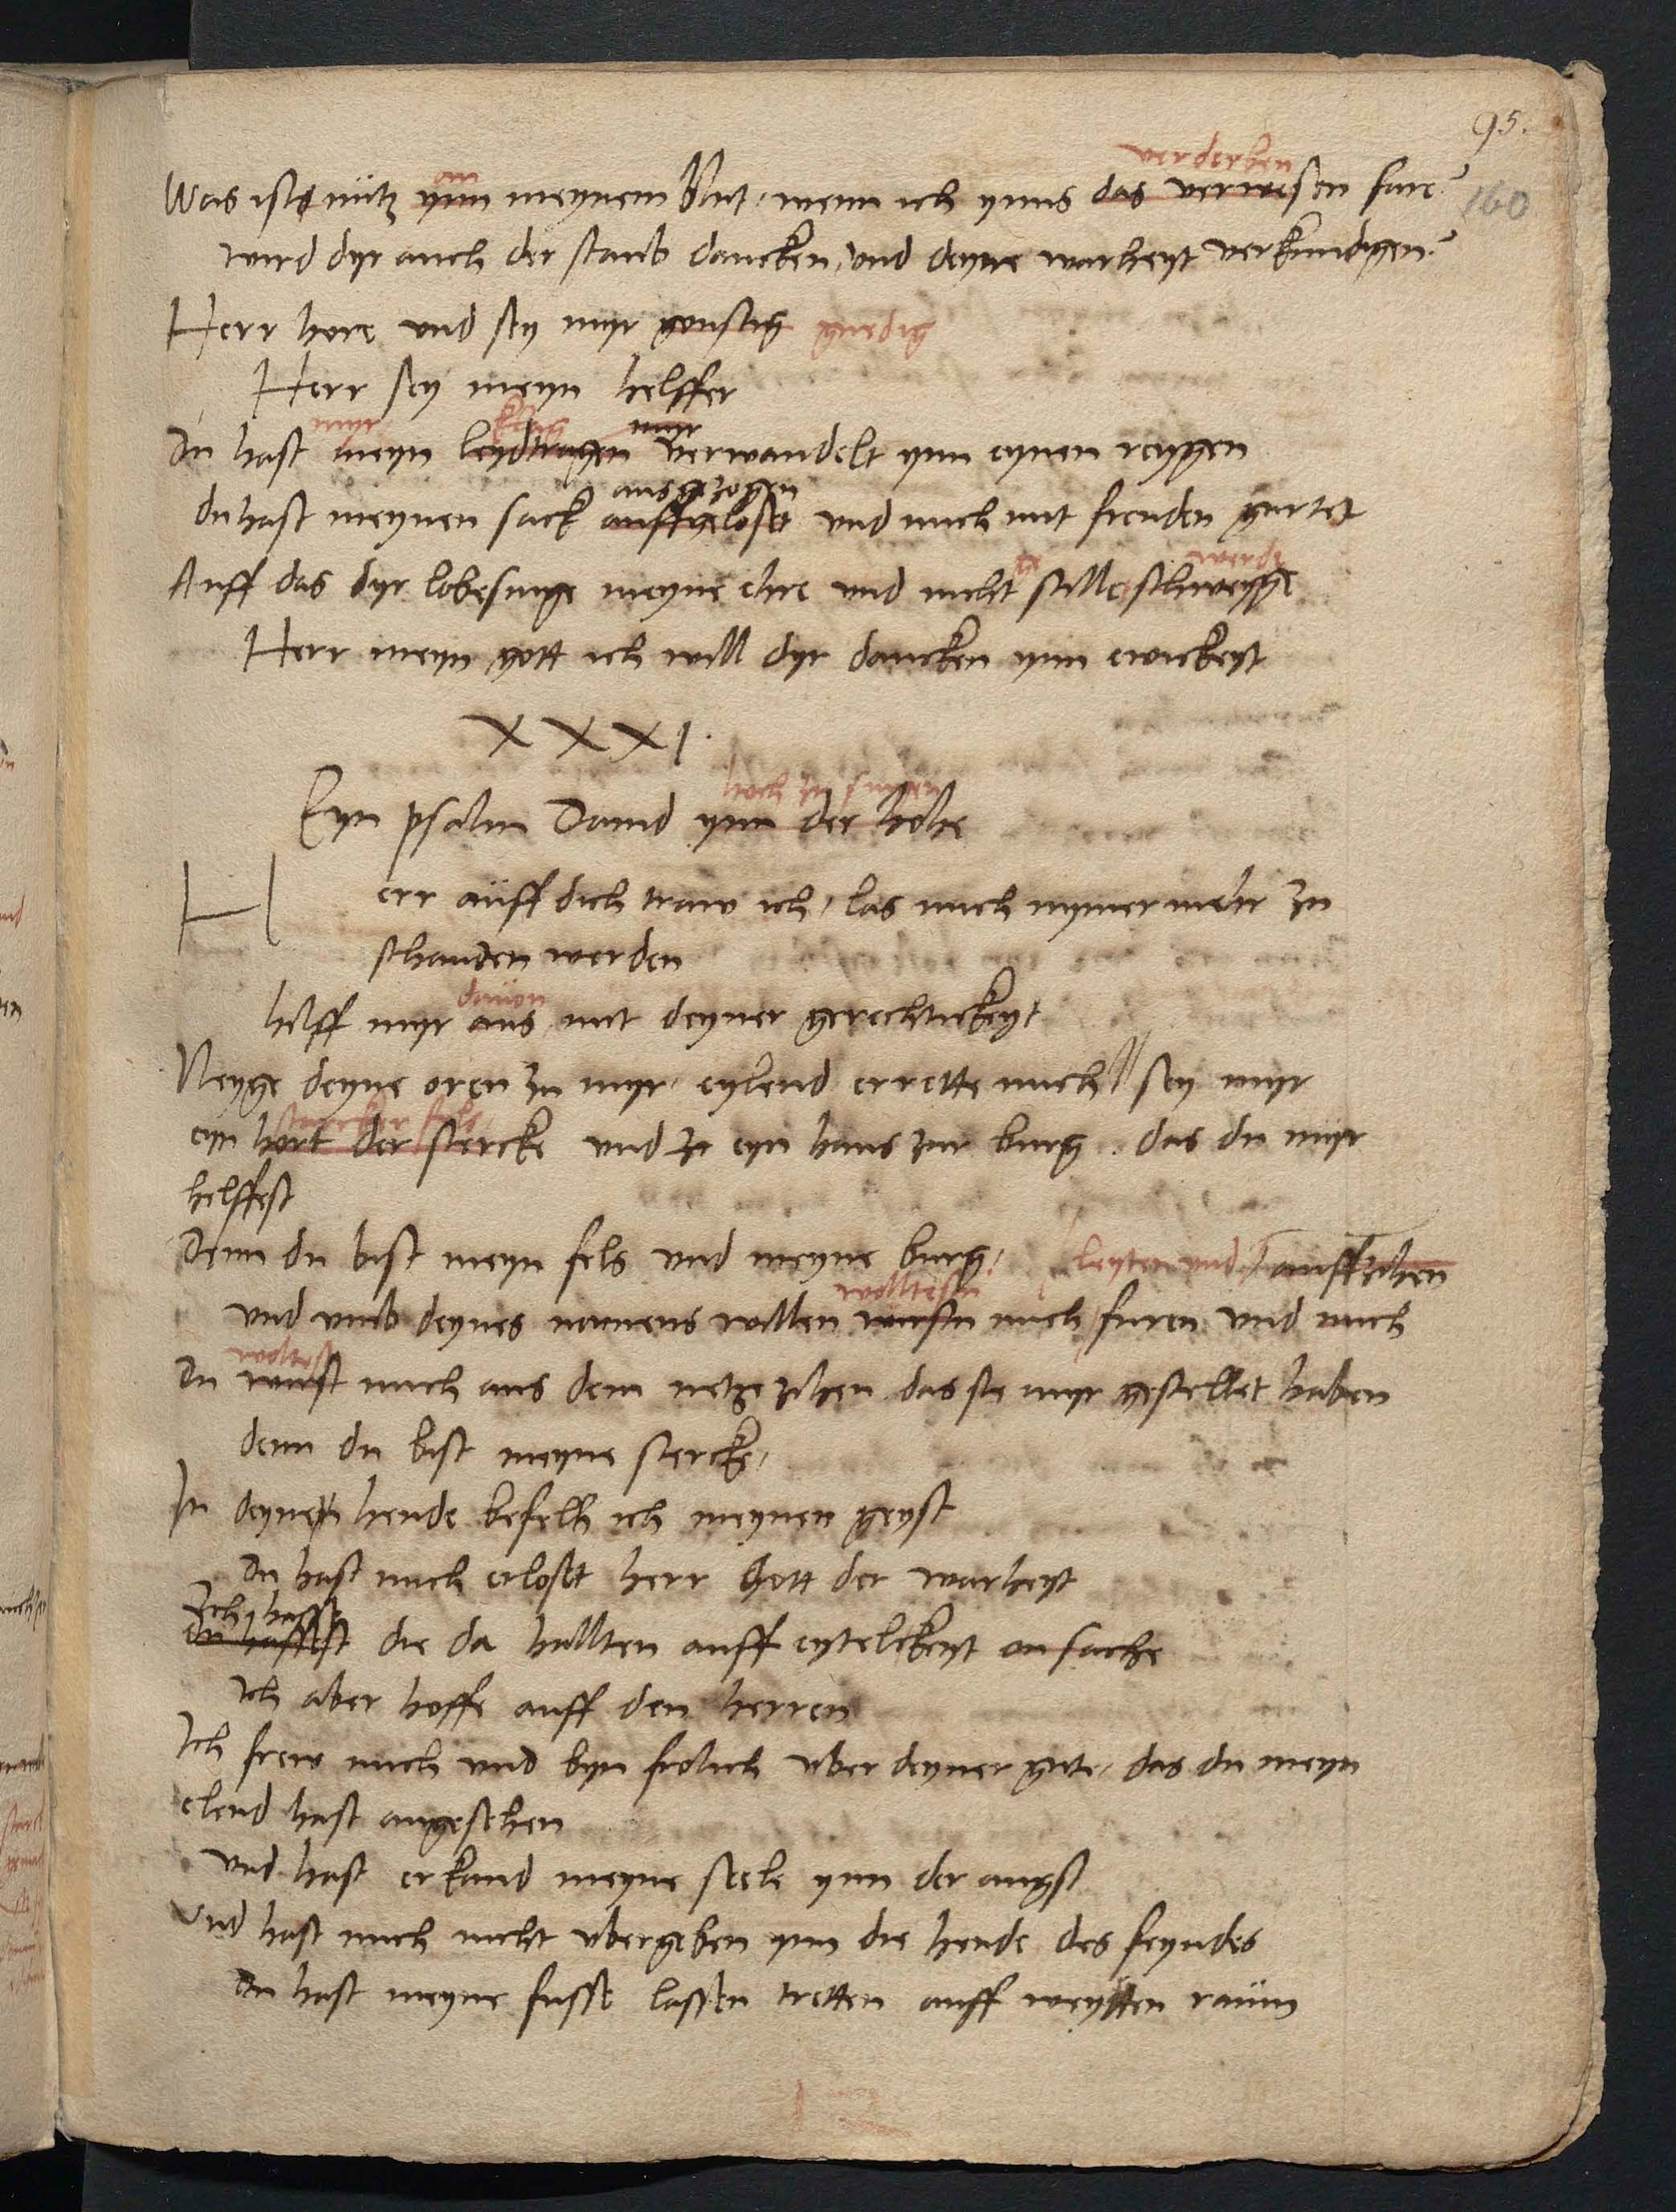 95.
160
verderben
an
Was ists nütz ynn meynem blut, wenn ich ynns das verwesen fare?
wird dyr auch der staub dancken, und deyne warheyt verkundigen?
Herr hore und sey myr gonstig gnedig
Herr sey meyn helffer
myr klag myr
Du hast meyn leydtragen verwandelt ynn eynen reygen
ausgezogen
du hast meynen sack auffgeloset und mich mit freuden gurtet
Auff das dyr lobesinge meyne ehre und nicht stille schweyge
Herr meyn gott ich will dyr dancken ynn ewickeyt
XXXI.
hoch zu singen
Eyn psalm David ynn der hohe
Herr auff dich traw ich, las mich nymer mehr zu
schanden werden
davon
hilff myr aus mit deyner gerechtickeyt
Neyge deyne oren zu myr, eylend errette mich // sey myr
starcker fels
eyn hort der stercke und zu eyn haus zur burg. das du myr
helffest
Denn du bist meyn fels und meyne burg, leyten und auffzihen
wolltestu
und umb deynes namens willen wirstu mich furen und mich
Du wirst mich aus dem netze zihen das sie myr gestellet haben
denn du bist meyne stercke,
In deynen hende befelh ich meynen geyst
du hast mich erloset herr Gott der warheyt
Ich hasse
du hassest die da hallten auff eytelckeyt on sache
Ich aber hoffe auff den herren
Ich frew mich und byn frolich uber deyner gute, das du meyn
elend hast angesehen
und hast erkand meyne seele ynn der angst
Und hast mich nicht ubergeben ynn die hende des feyndes
du hast meyne fusse lassen tretten auff weytten raum